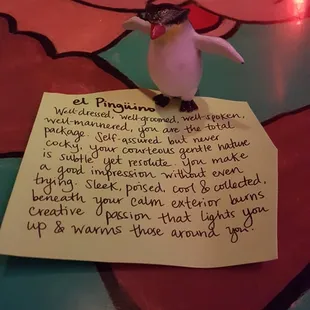 el Pingüino
Well-dressed, well-groomed, well-spoken,
well-mannered, you are the total
package. Self-assured but never
cocky, your courteous gentle nature
is subtle yet resolute. you make
a good impression without even
trying. Sleek, poised, cool & collected,
beneath your calm exterior burns
creative passion that lights you
up & warms those around you!